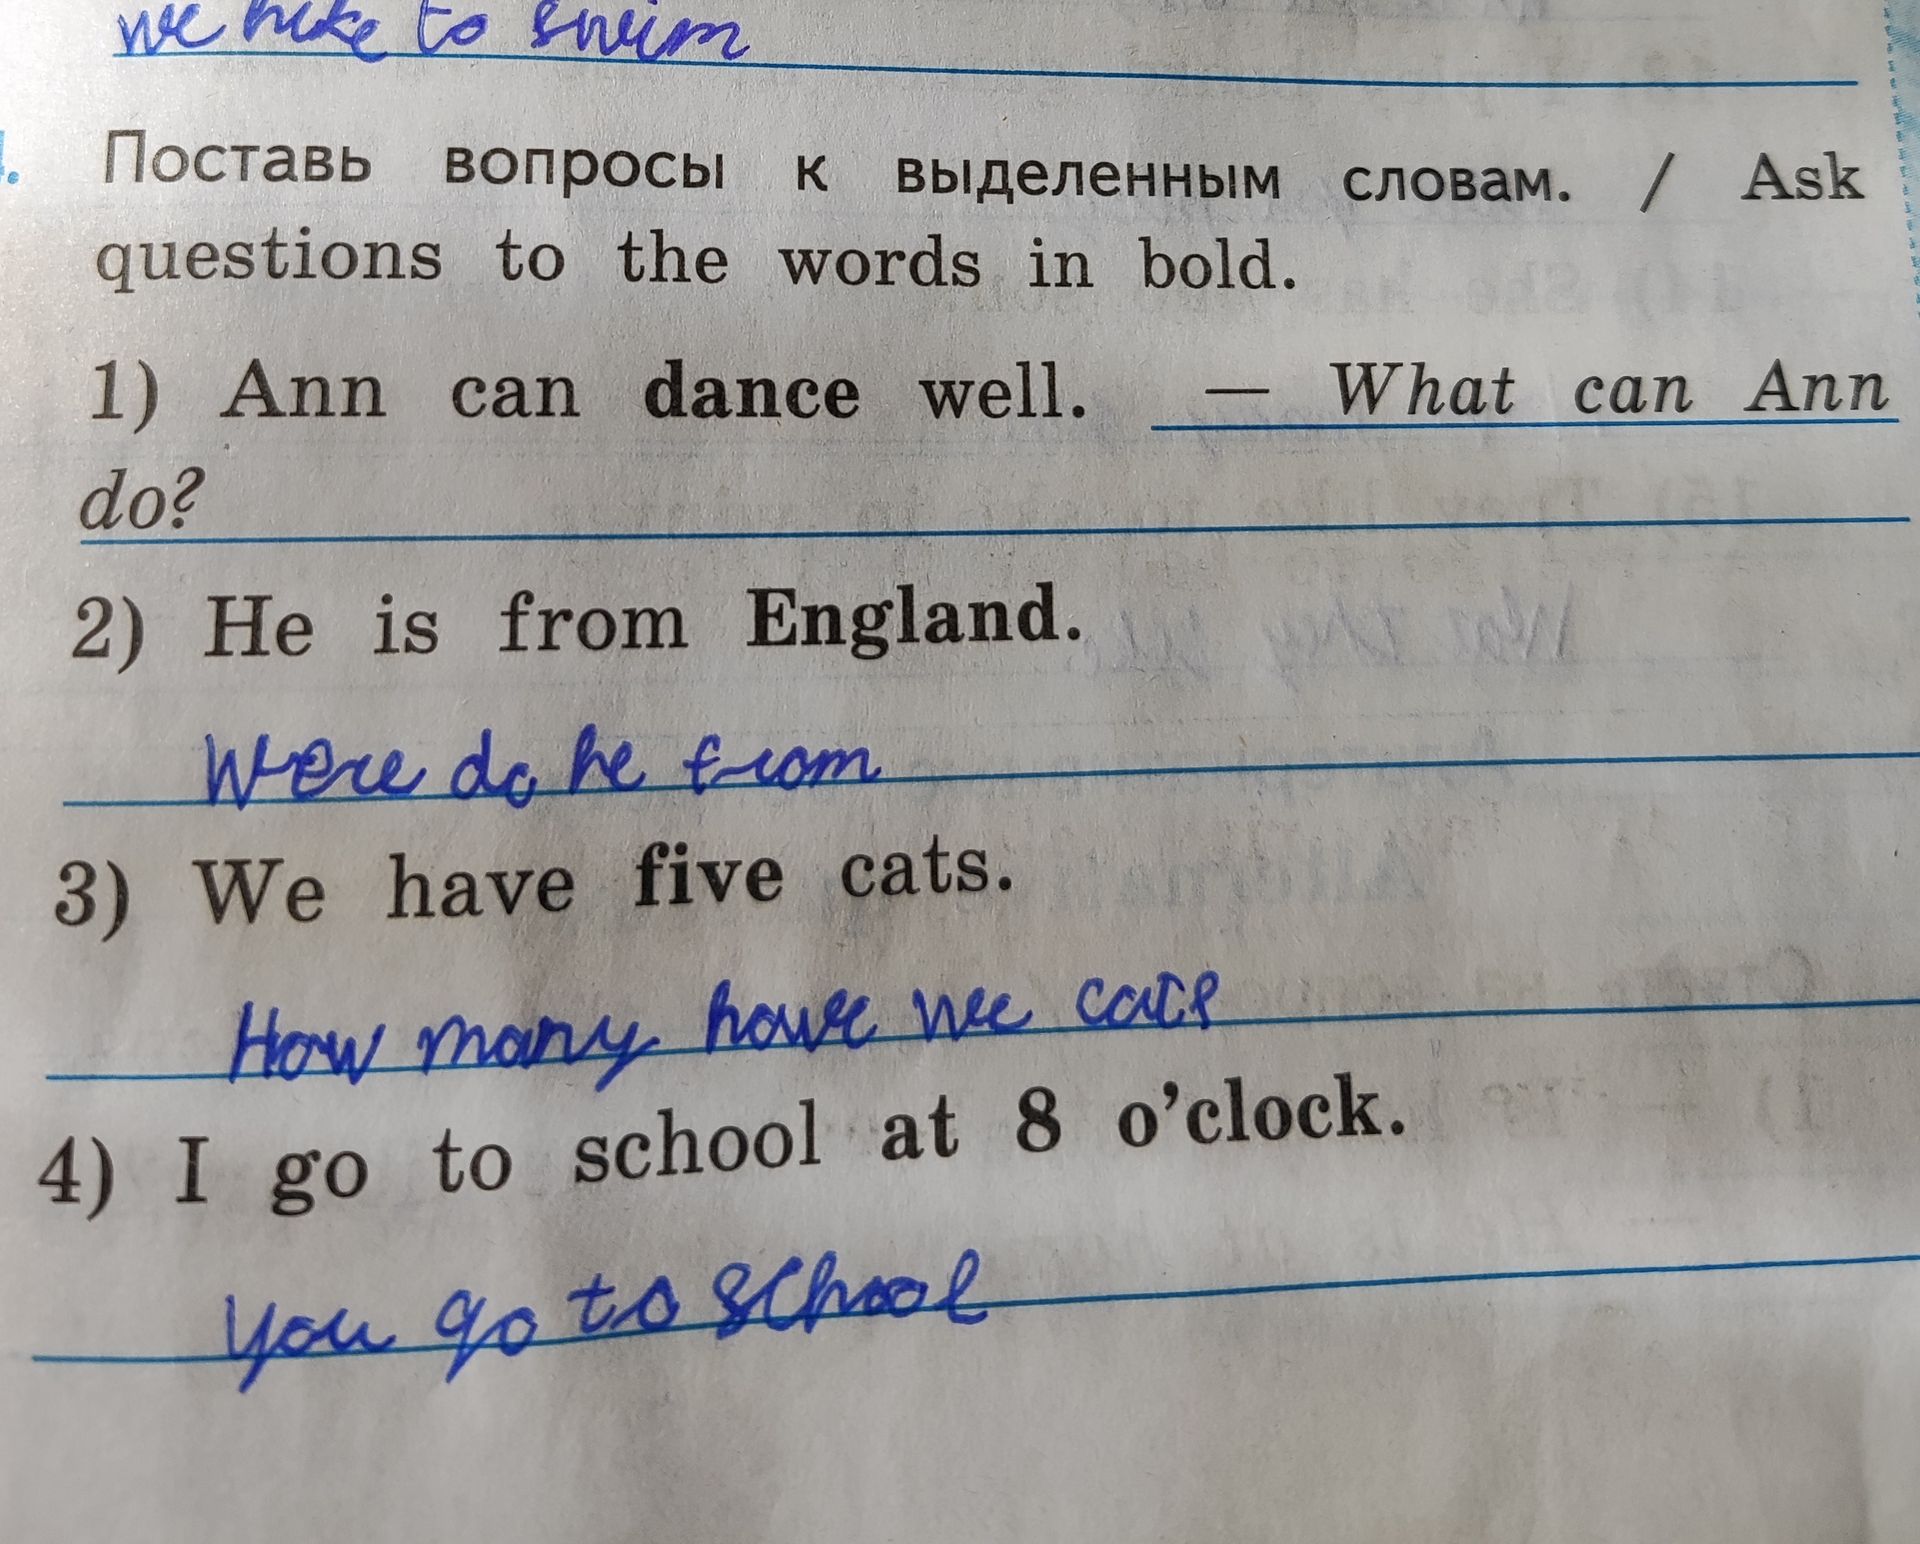 we like to swim
Поставь вопросы к выделенным словам. / Ask
questions to the words in bold.
1) Ann can dance well. — What can Ann
do?
2) He is from England.
Were do he from
3) We have five cats.
How many have we cats
4) I go to school at 8 o'clock.
you go to school